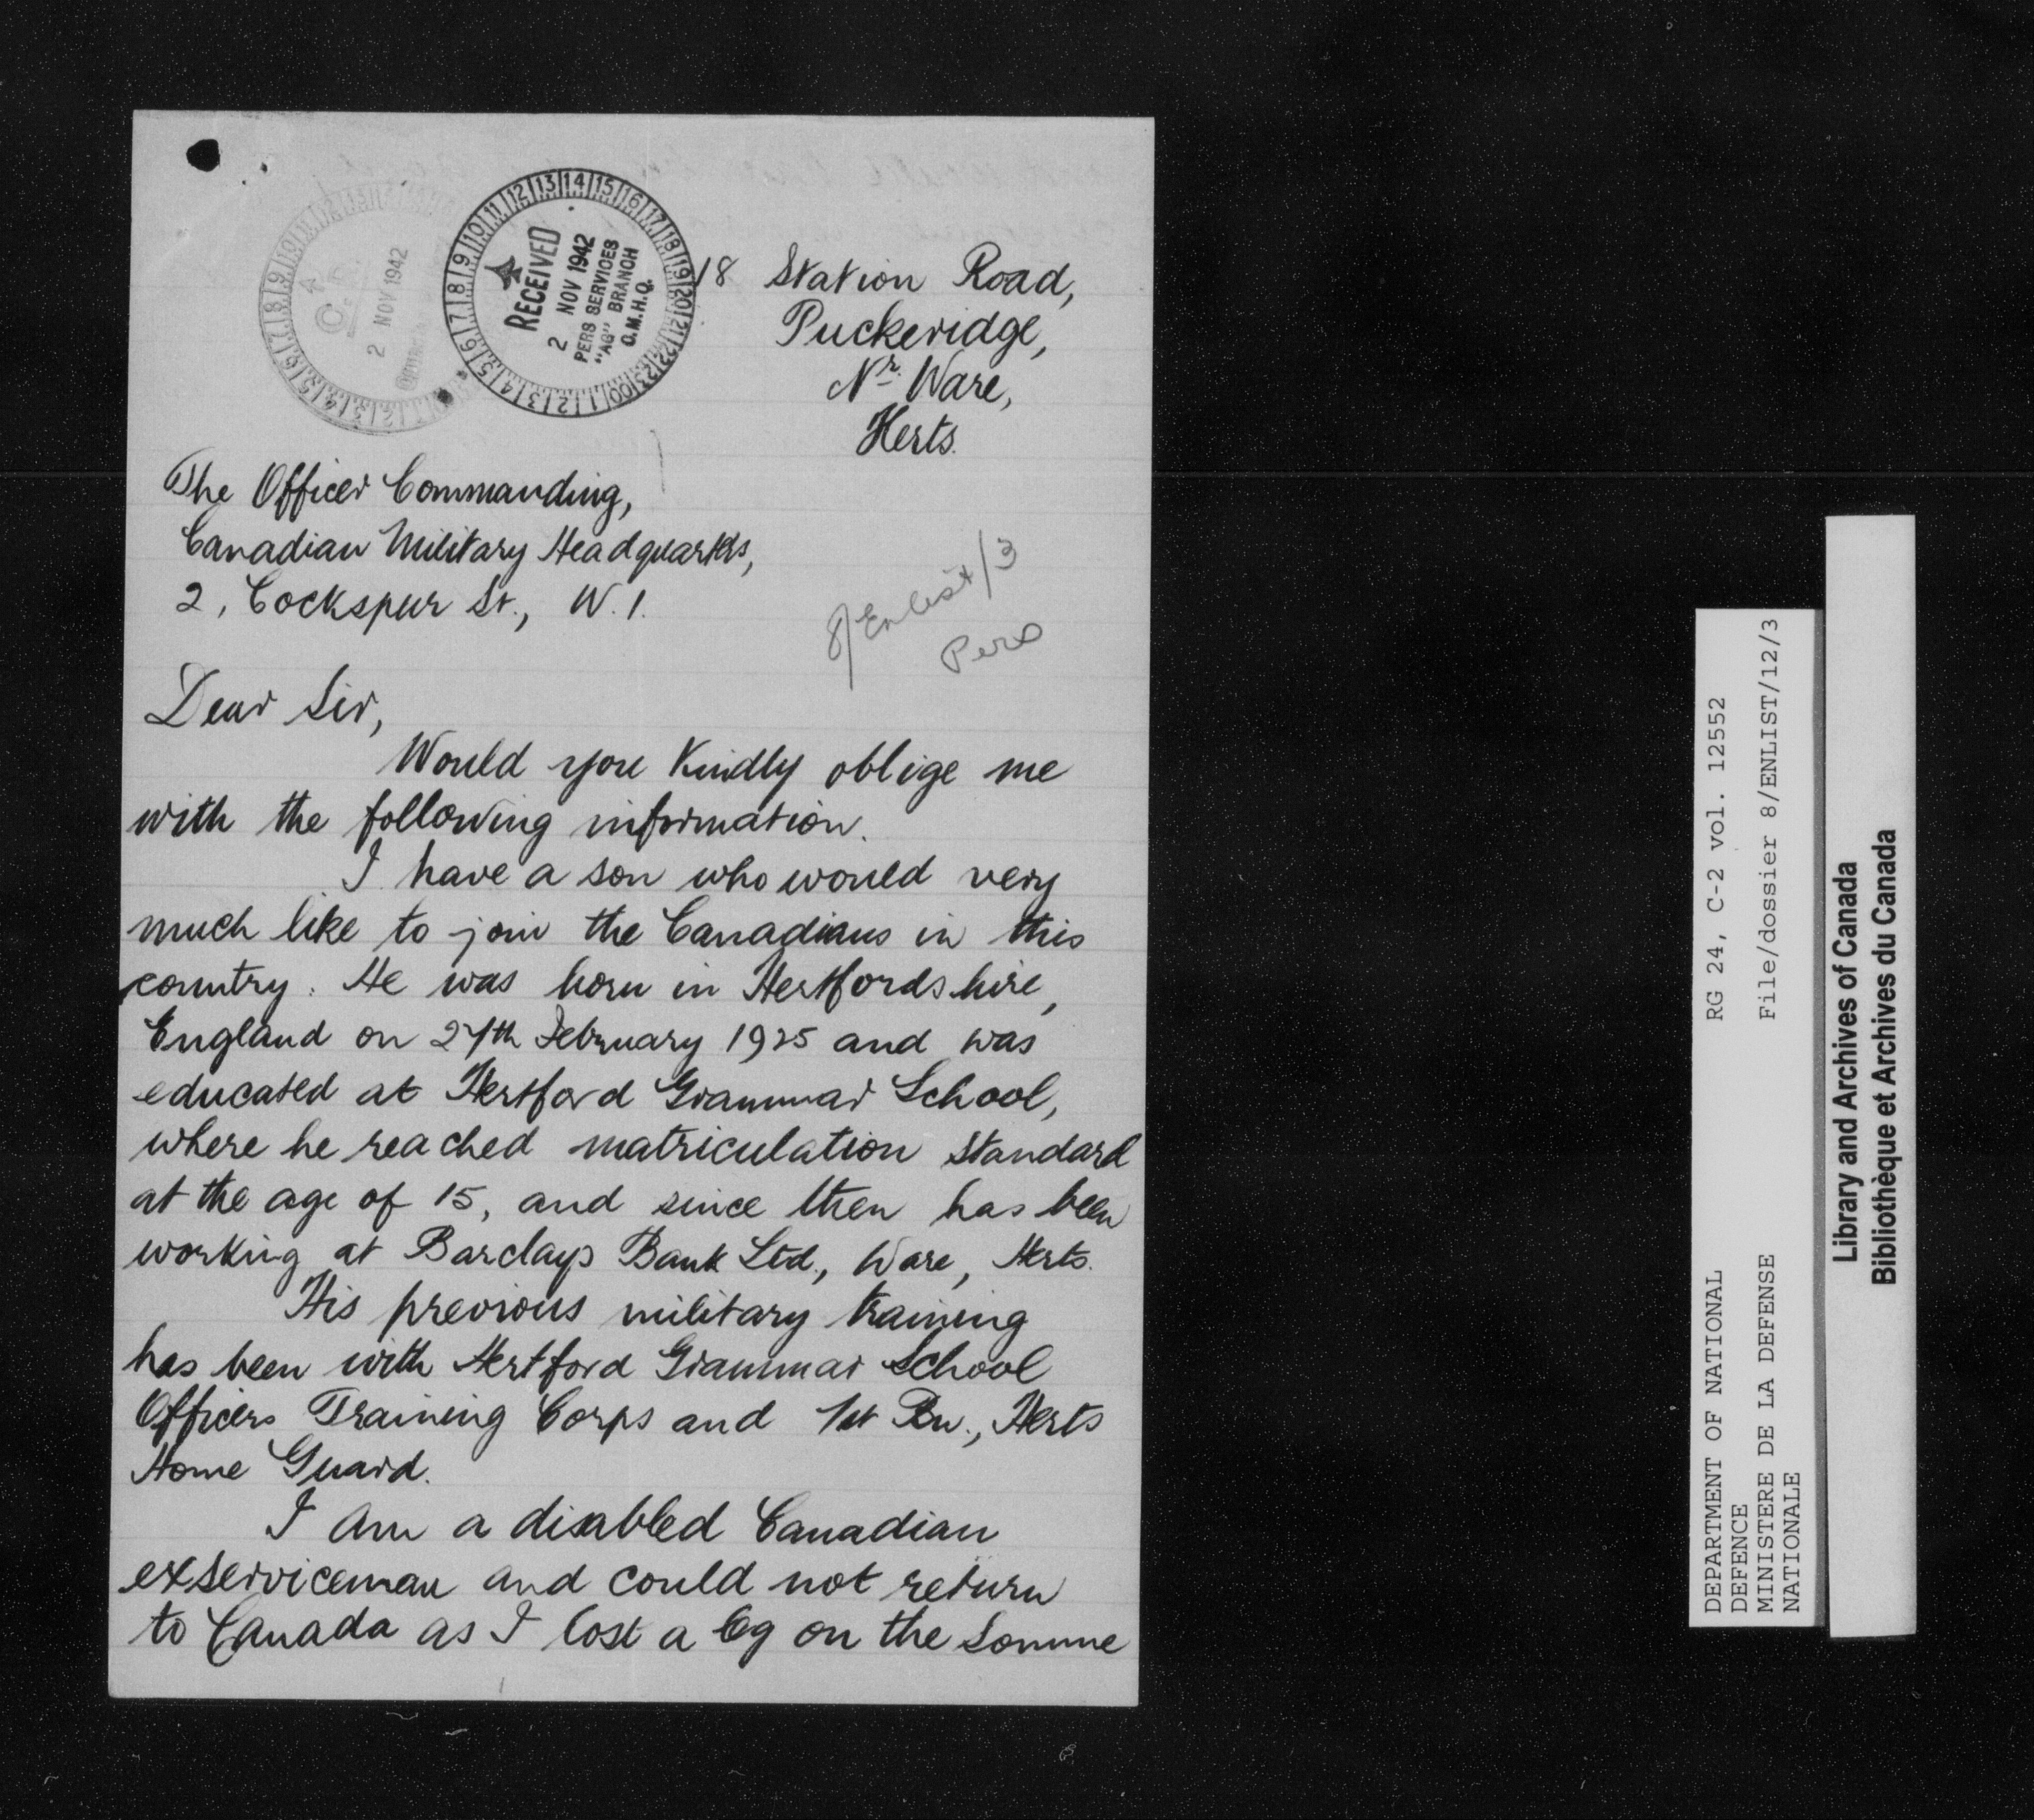 RECEIVED
2 NOV 1942
PERS SERVICES
"AG" BRANCH
C.M.H.Q.
2 NOV 1942
18 Station Road,
Puckeridge,
Nr. Ware,
Herts.
The Officer Commanding,
Canadian Military Headquarters,
2, Cockspur St., W.1.
8/Enlist/3
Pers
Dear Sir,
Would you kindly oblige me
with the following information.
I have a son who would very
much like to join the Canadians in this
country. He was born in Hertfordshire,
England on 27th February 1925 and was
educated at Hertford Grammar School,
where he reached matriculation standard
at the age of 15, and since then has been
working at Barclays Bank Ltd., Ware, Herts.
His previous military training
has been with Hertford Grammar School
Officers Training Corps and 1st Bn., Herts
Home Guard.
I am a disabled Canadian
exserviceman and could not return
to Canada as I lost a leg on the Somme
DEPARTMENT OF NATIONAL
DEFENCE
MINISTERE DE LA DEFENSE
NATIONALE
RG 24, C-2 vol. 12552
File/dossier 8/ENLIST/12/3
Library and Archives of Canada
Bibliothèque et Archives du Canada